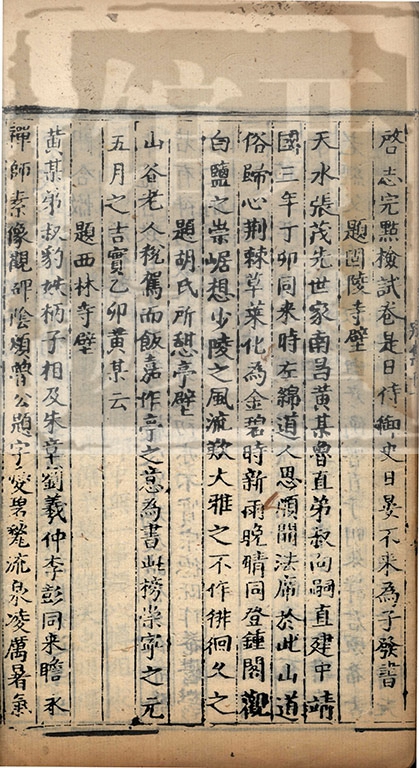 啓志完點檢試卷是日侍御史日晏不來為子發書
題固陵寺壁
天水張茂先世家南昌黃某魯直弟叔向嗣直建中靖
國三年丁卯同来時左綿道人思順開法席於此山道
俗歸心荆棘草萊化為金碧時新雨晚晴同登鍾閣觀
白鹽之崇崛想少陵之風流歎大雅之不作徘徊久之
題胡氏所憇亭壁
山谷老人稅駕而飯嘉作亭之意為書此榜崇寧之元
五月之吉實乙卯黃某云
題西林寺壁
黃某弟叔豹姪柄子相及朱章劉羲仲李彭同来瞻永
禪師素像觀碑陰顔魯公題字愛碧甃流泉凌厲暑氣